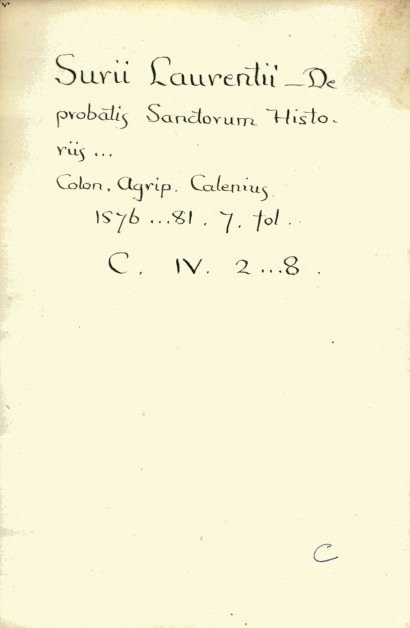 Surii Laurentii — De
probatis Sanctorum Histo-
riis ...
Colon. Agrip. Calenius
1576 ... 81. 7. fol.
C. IV. 2 ... 8.
C